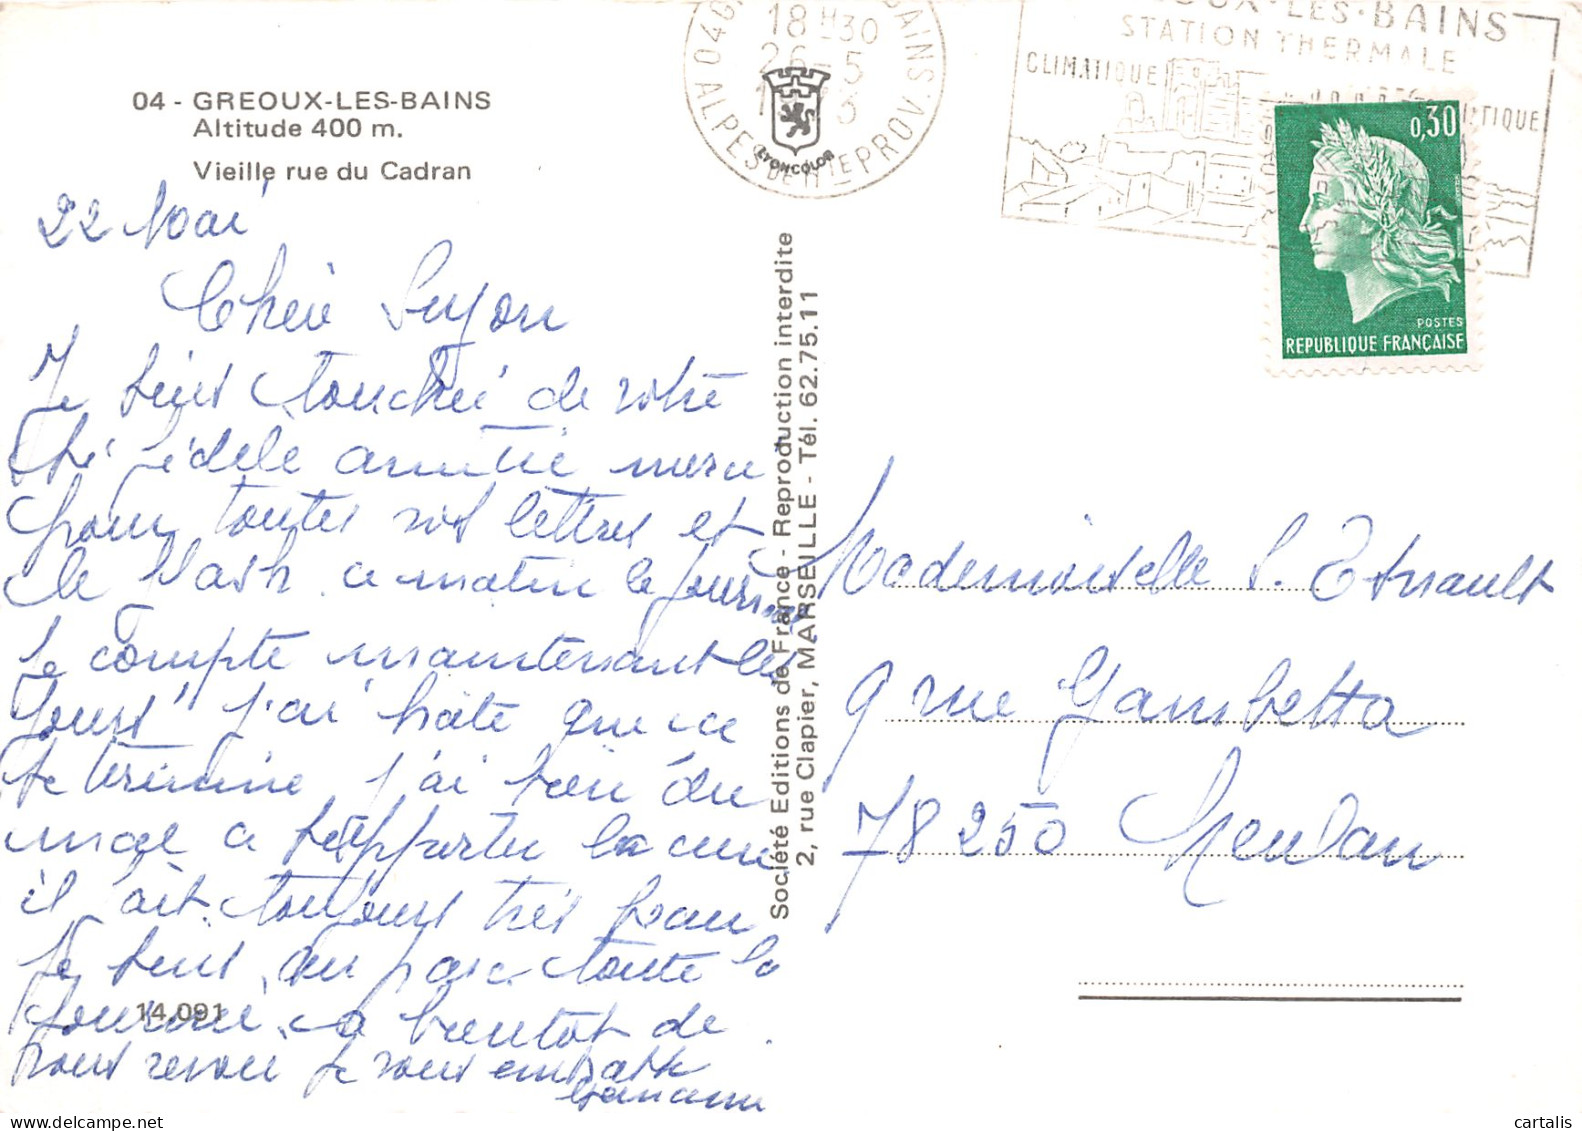 04 - GREOUX-LES-BAINS
Altitude 400 m.
Vieille rue du Cadran
22 Mai
Chère Suzon
Je suis touchée de votre
si fidèle amitié merci
pour toutes vos lettres et
le ce matin le journal
Je compte maintenant les
jours" j'ai hâte que ce
se termine j'ai bien du
mal a supporter la cure
il fait toujours très beau
Je suis au parc toute la
journée a bientot de
vous revoir Je vous embrasse
14.091
Société Editions de France - Reproduction interdite
2, rue Clapier, MARSEILLE - Tél. 62.75.11
LYONCOLOR
18H30
26-5
ALPES DE HTE PROV.
LES-BAINS
STATION THERMALE
CLIMATIQUE
0,30
POSTES
REPUBLIQUE FRANÇAISE
Mademoiselle S.
9 rue Gambetta
78250 Meulan
cartalis.com